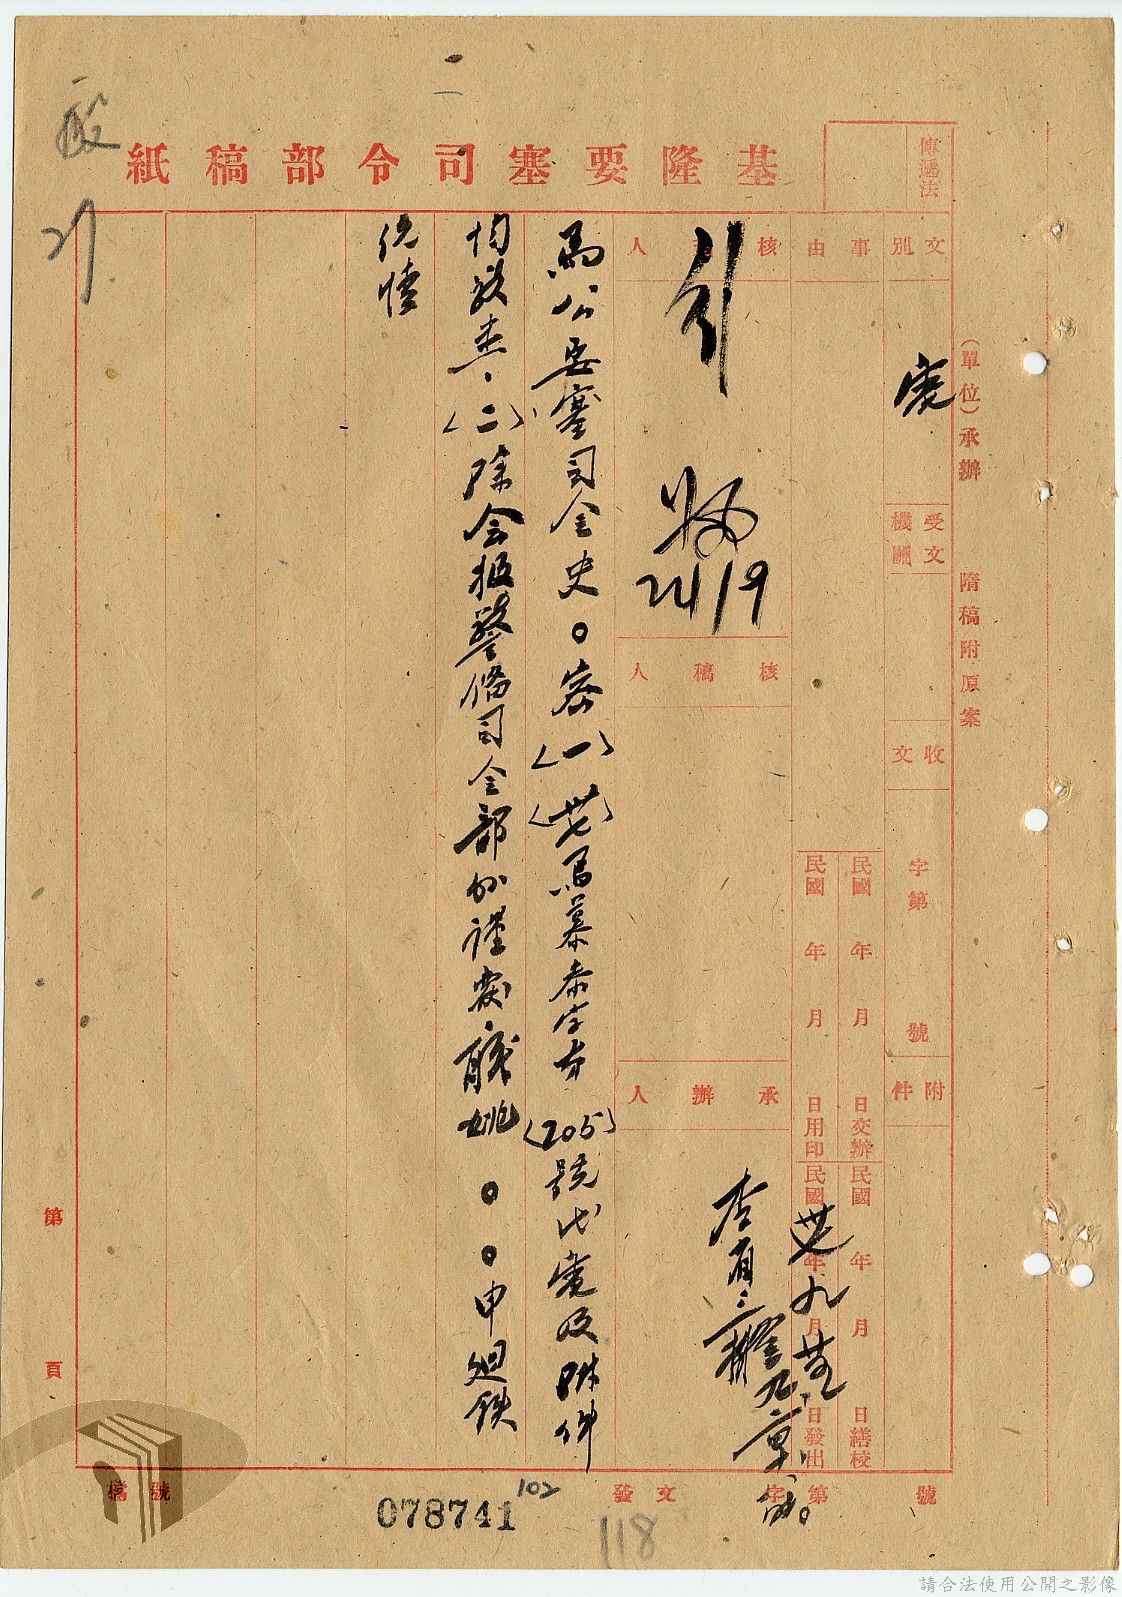 基隆要塞司令部稿紙
傳遞法
(單位)承辦
隋稿附原案
文別
電
受文機關
收文
字第 號
附件
事由
民國 年 月 日交辦
民國 年 月 日繕校
民國 年 月 日用印
民國 年 月 日發出
核 人
核稿人
承辦人
24/9
李有三擬
馬公要塞司令史。密(一)(卅七)馬幕泰字第(205)號代電及附件
均敬悉、(二)除令報警備司令部外謹復職姚。。申迴鉄
第 頁
檔號
發文 字第 號
078741
102
118
請合法使用公開之影像